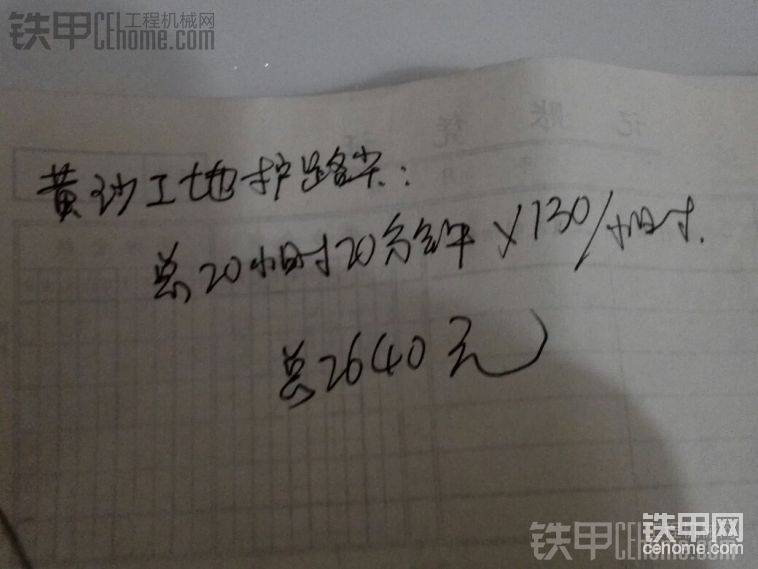 铁甲 工程机械网
CEhome.com
记账凭证
黄沙工地护路尖:
总20小时20分钟 X 130/小时.
总2640元
铁甲CEhome.com
铁甲网
cehome.com